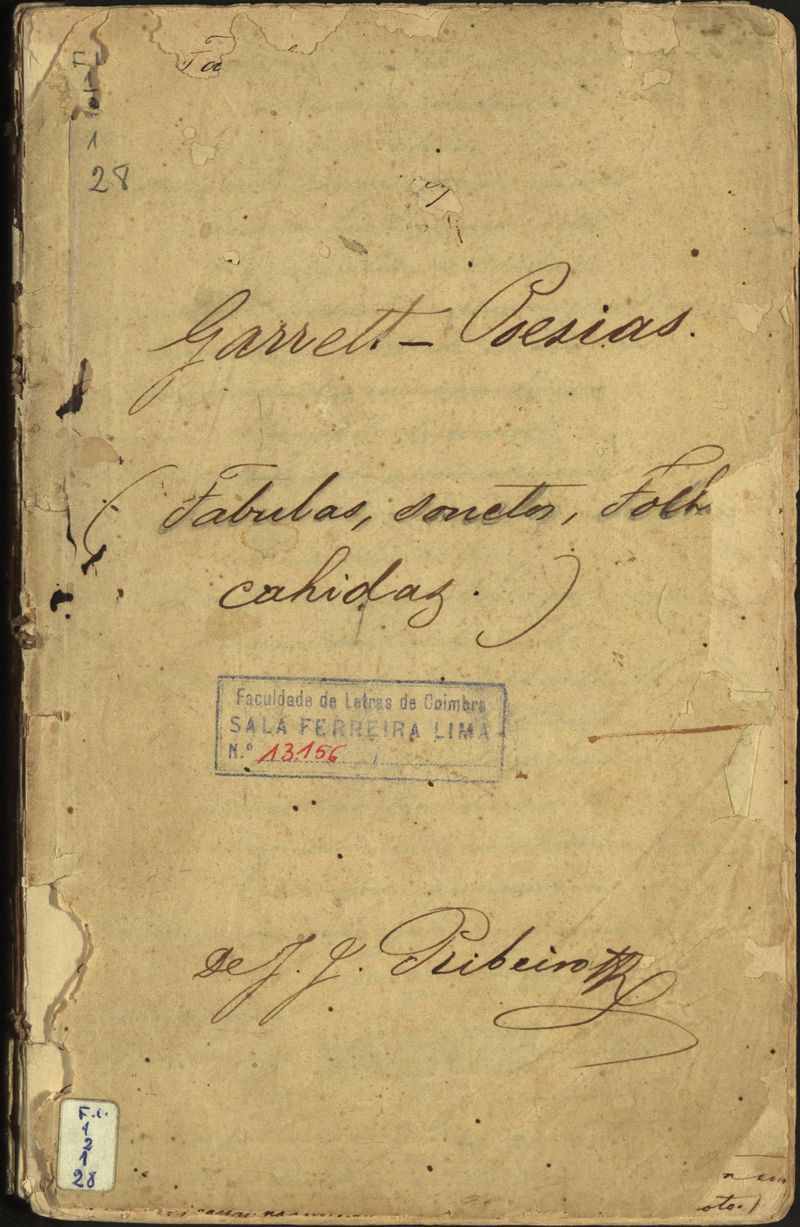 Fa
F.L.
1
2
1
28
Garrett – Poesias.
(Fabulas, sonetos, Folh
cahidas.)
Faculdade de Letras de Coimbra
SALA FERREIRA LIMA
N.º 13.156
de J. J. Ribeiro
F.L.
1
2
1
28